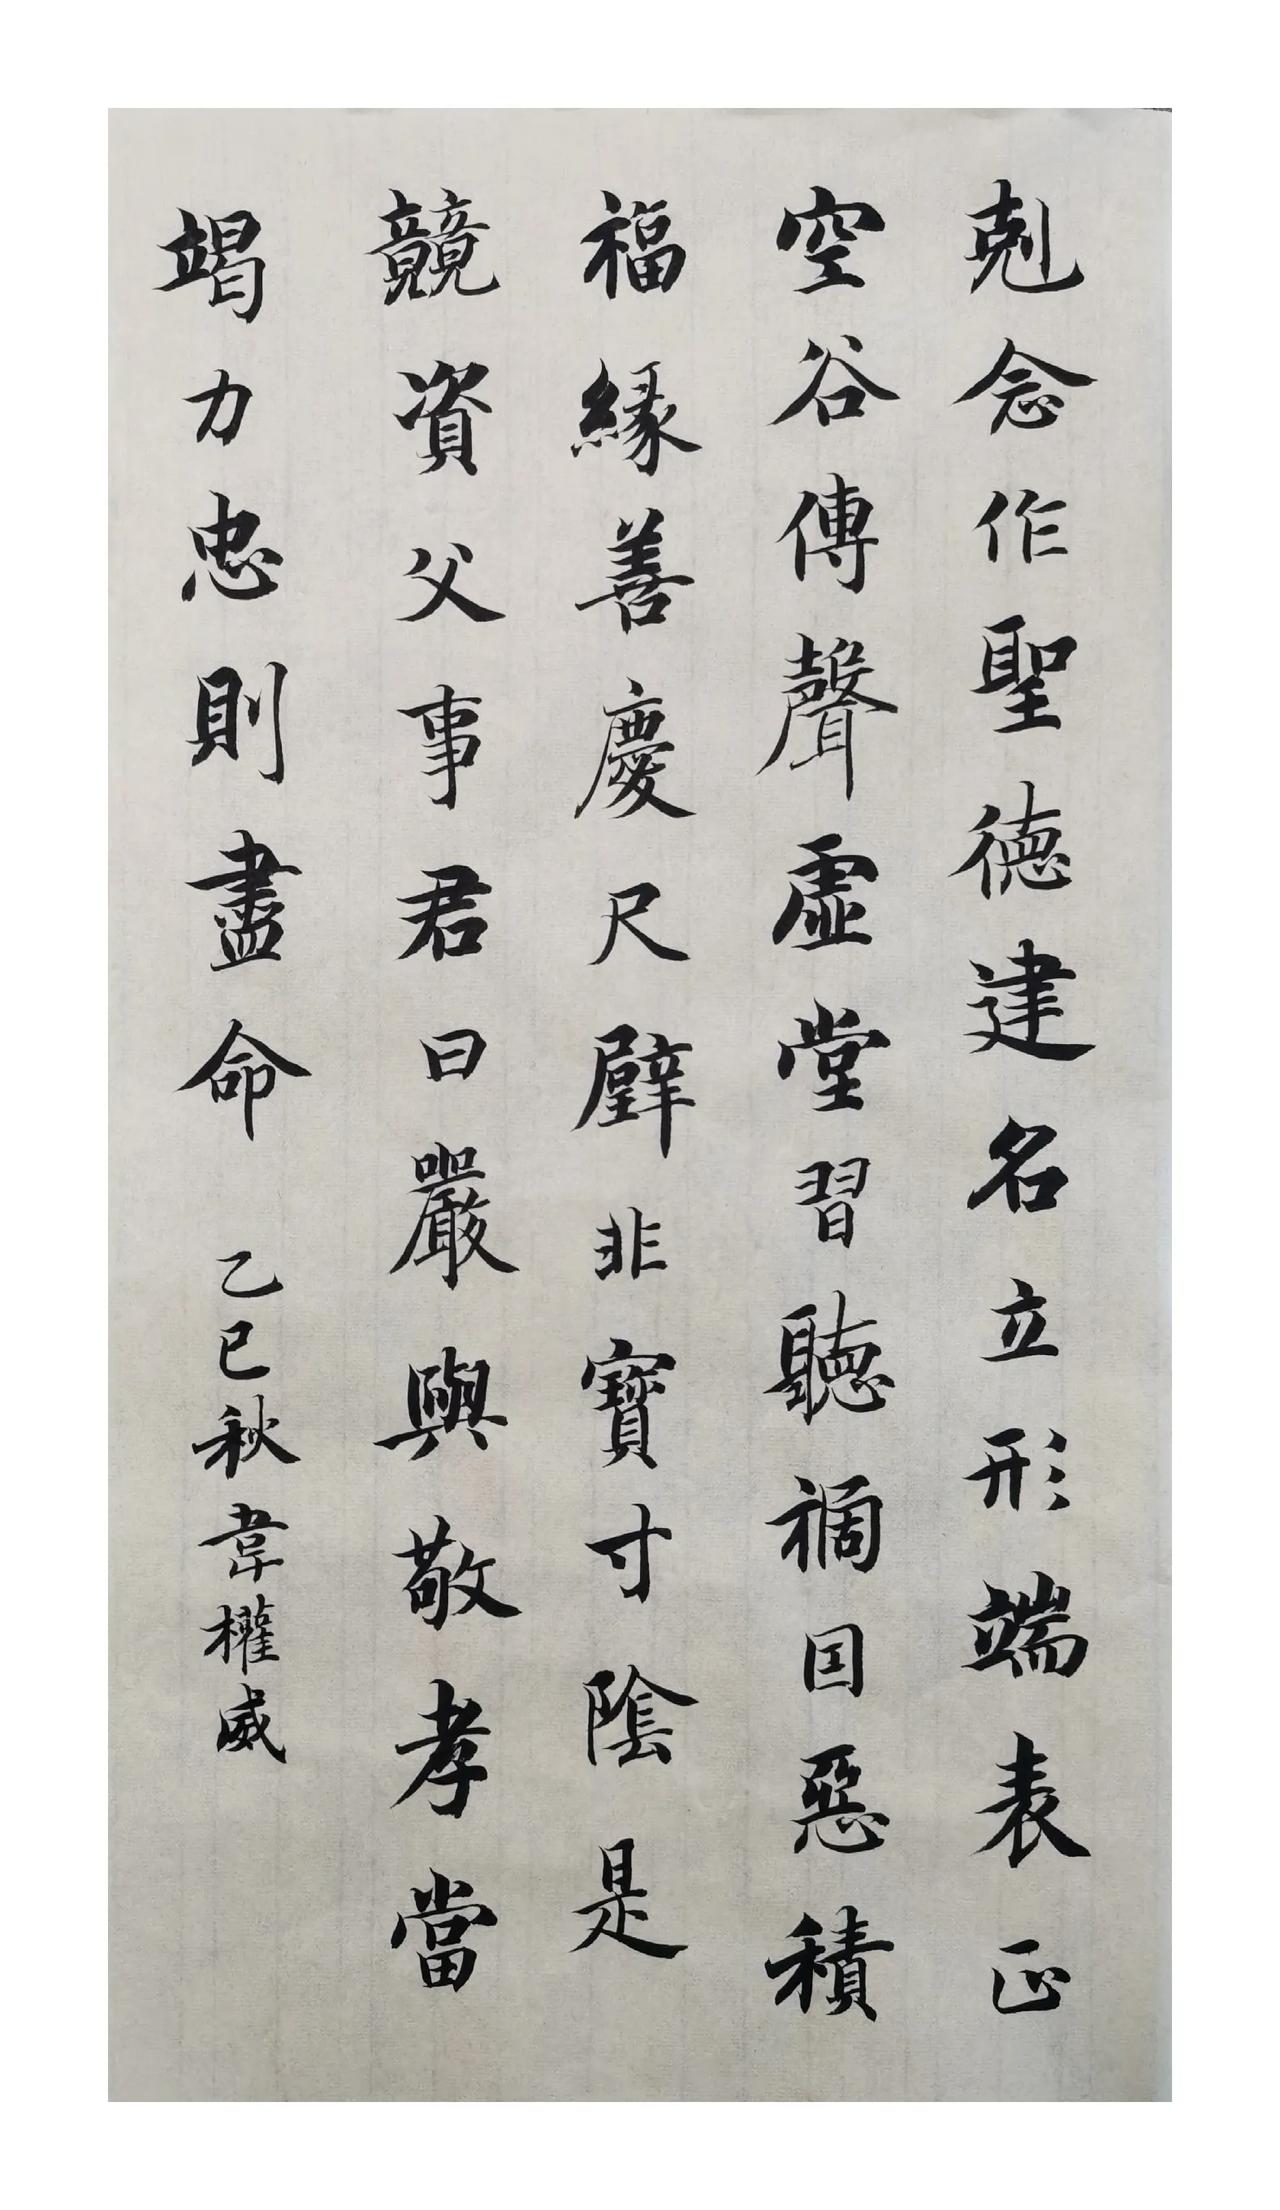 剋念作聖德建名立形端表正
空谷傳聲虛堂習聽禍因惡積
福緣善慶尺璧非寶寸陰是
競資父事君曰嚴與敬孝當
竭力忠則盡命 乙巳秋韋權威